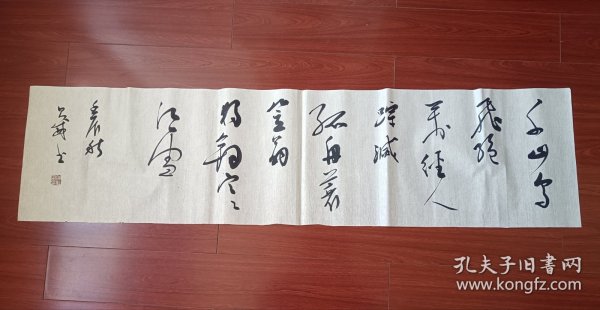 千山鸟
飛絕
萬徑人
踪滅
孤舟蓑
笠翁
独钓寒
江雪
孔夫子旧书网
www.kongfz.com